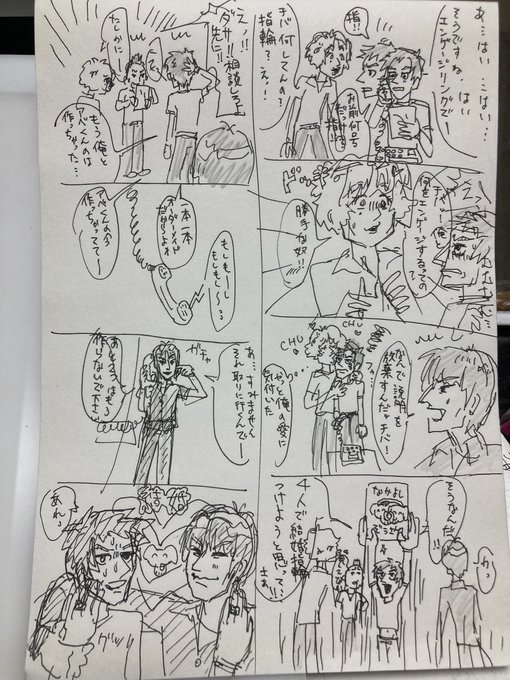 あ…はい…はい…
そうですね、はい
エンゲージリングでー
指!!
お前何号
チバ何してんの?
指輪?え?
チバ…俺と
何をエンゲージするっての
??
勝手な奴!!
なんで説明を
放棄すんだチバ!
CHU
CHU
フッ…
やっと俺の愛に
気付いた
そうなんだ!!
なかよし
4人で結婚指輪
つけようと思って
さぁ!!
えっ!!
ダサ!!相談しろよ
先に!!
たしかに!
もう俺と
アベくんのは
作っちゃった…
一本一本
オーダーメイド
だからよお
アベくんの今
作っちゃってて…
もしもーし
もしもし〜?
ガチャ
あ…すみません
それ取りに行くんでー
あとそっちはもう
作らないで下さい
あれっ
グッ